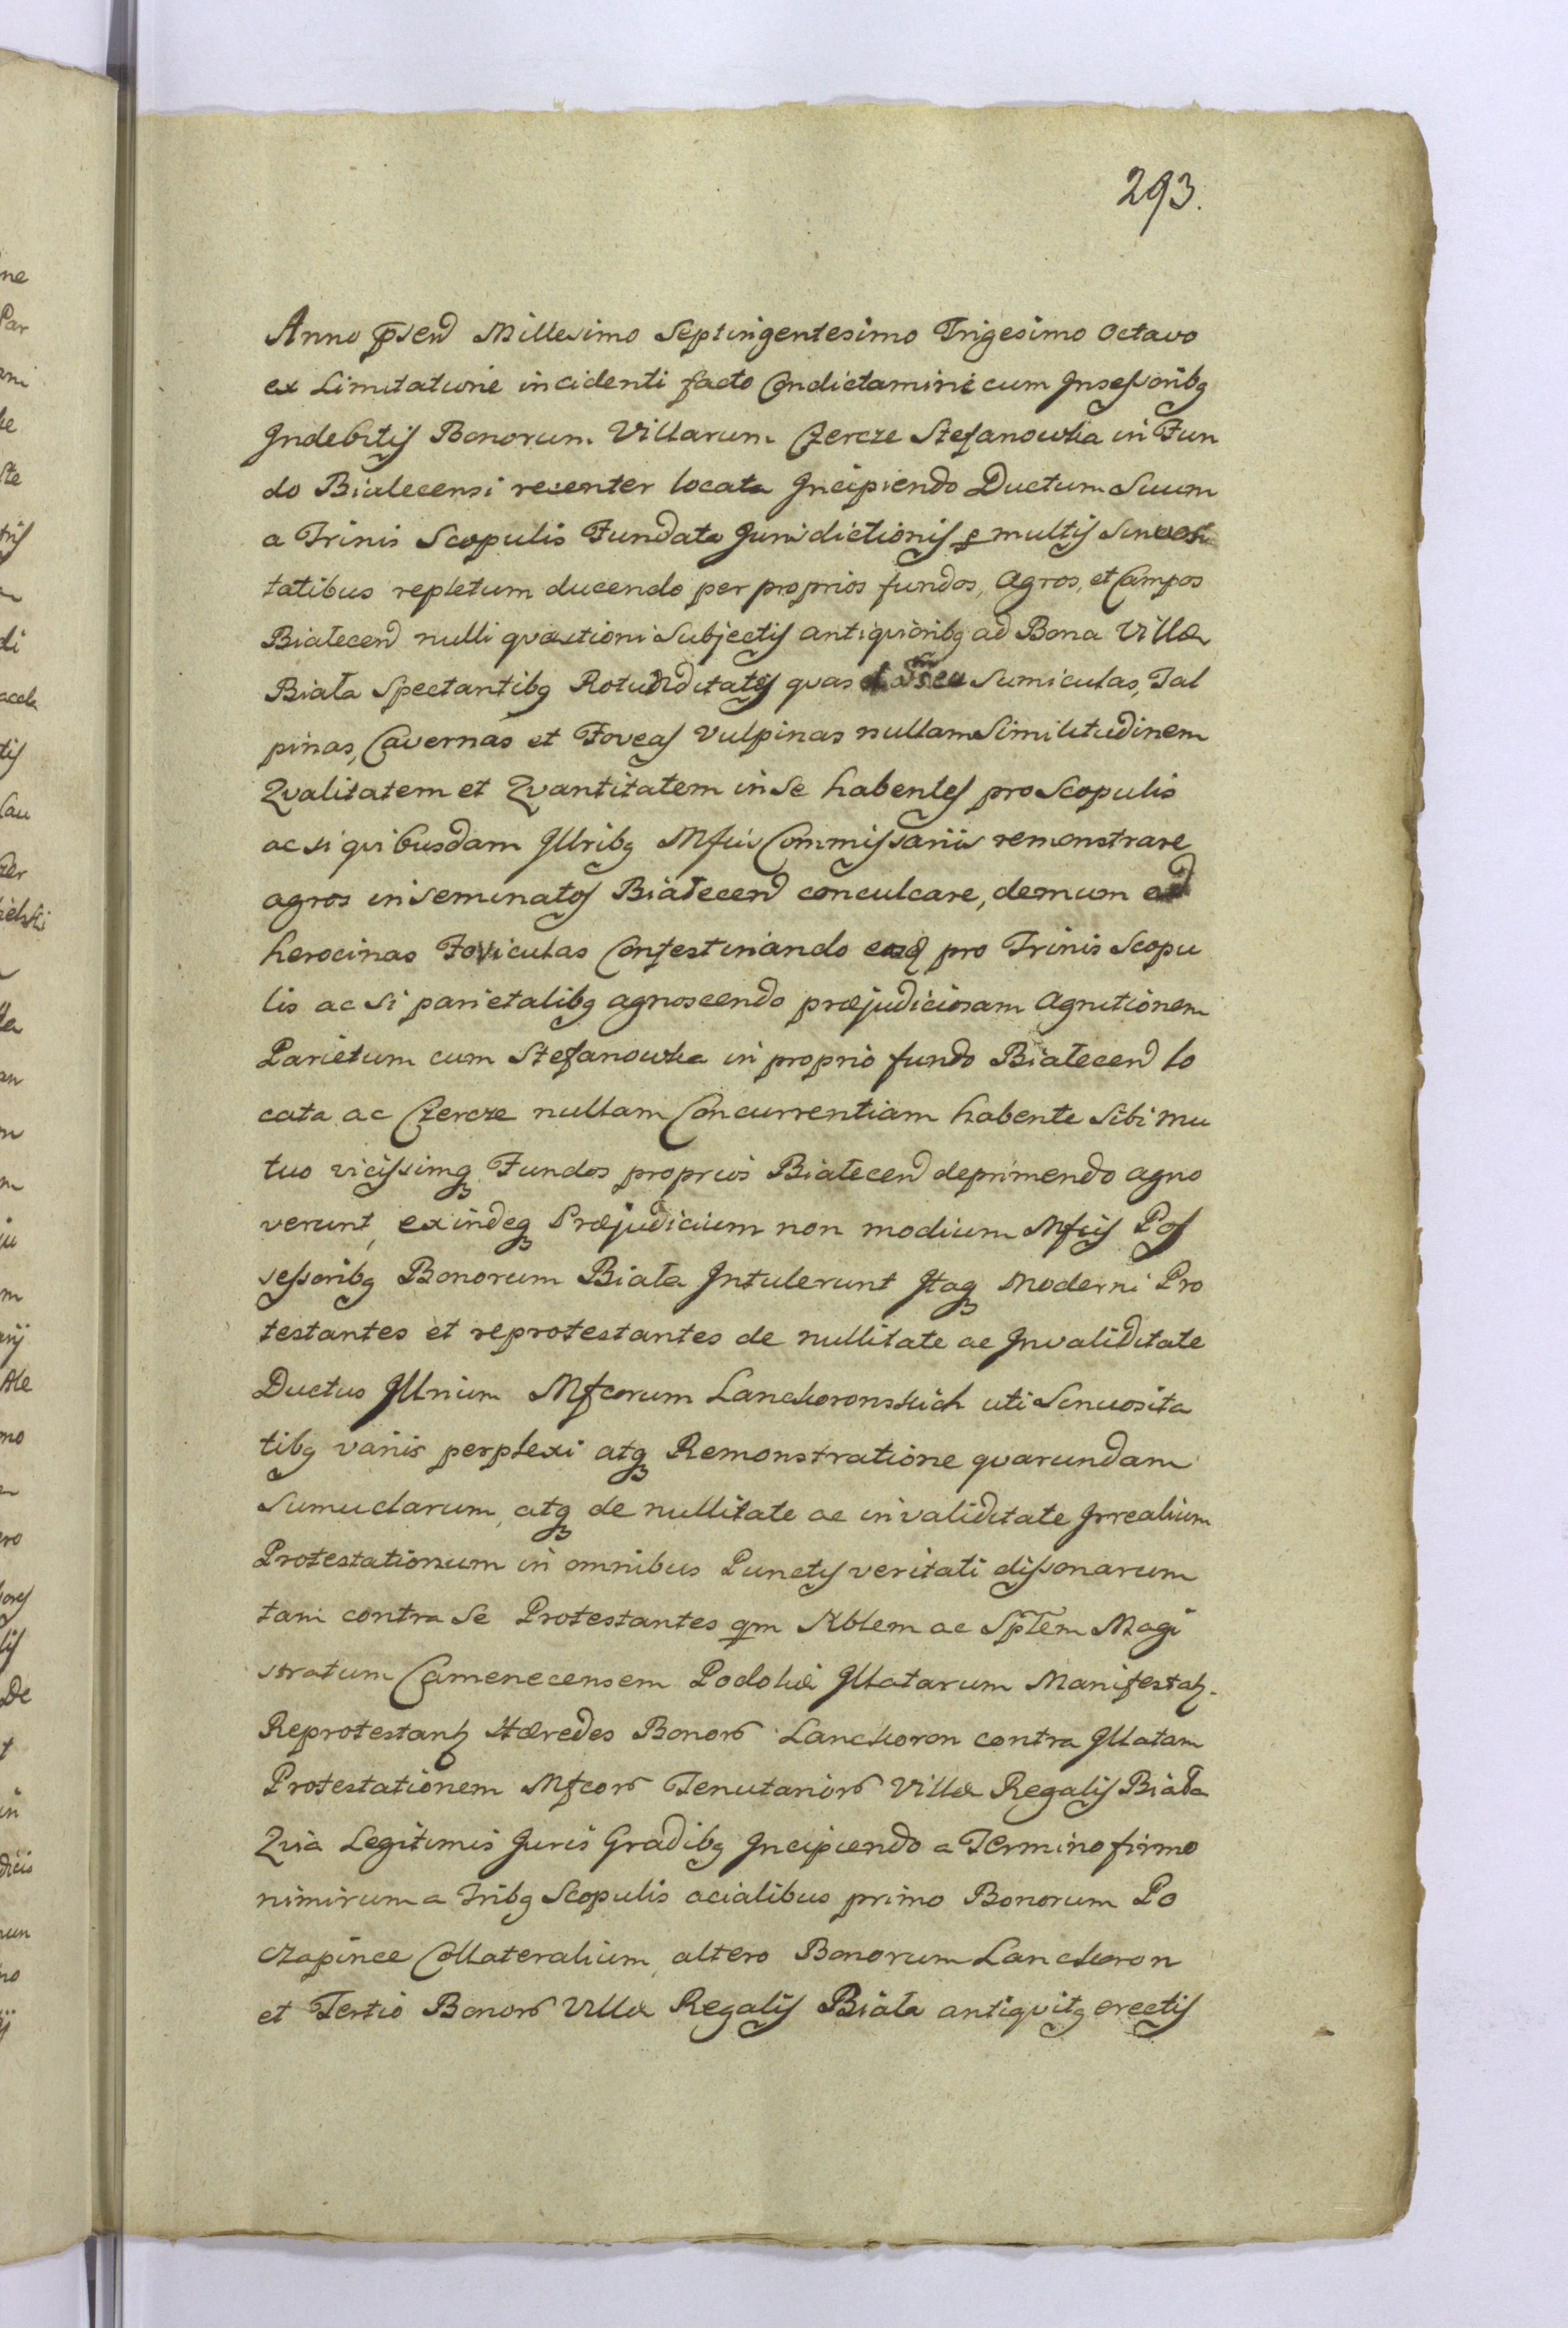 293.
Anno pꝛsend Millesimo Septingentesimo Trigesimo Octavo
ex Limitatione incidenti facto Condictamine cum Insessoribq
Indebitis Bonorum Villarum Czercze Stefanowka in Fun
do Bialecensi recenter locata Incipiendo Ductum Suum
a Trinis Scopulis Fundata Jurisdictionis p multis
tatibus repletum ducendo per proprios fundos, Agros, et Campos
Białecend nulli quæstioni Subjectis antiquioribq ad Bona Villæ
Biała Spectantibq Rotundditates quas seu Sumiculas, Tal
pinas, Cavernas et Foveas Vulpinas nullam Similitudinem
Qvalitatem et Qvantitatem in Se habentes pro Scopulis
ac si quibusdam Illribq Mfcis Commissariis remonstrare
agros inseminatos Białecend conculcare, demum ad
herocinas Foviculas Confestinando easq pro Trinis Scopu
lis ac si parietalibq agnoscendo præjudiciosam Agnitionem
Parietum cum Stefanowka in proprio fundo Białecend lo
cata ac Czercze nullam Concurrentiam habente Sibi mu
tuo vicissimq Fundos proprios Białecend deprimendo agno
verunt, exindeq Præjudicium non modium Mfcis Pos
sessoribq Bonorum Biała Intulerunt Itaq Moderni Pro
testantes et reprotestantes de nullitate ac Invaliditate
Ductus Illrium Mfcorum Lanckoronskich uti Sinuosita
tibq variis perplexi atq Remonstratione quarundam
Sumuclarum, atq de nullitate ac invaliditate Irrealium
Protestationum in omnibus Punctis veritati dissonarum
tam contra Se Protestantes qm Nblem ac Spltem Magi
stratum Camenecensem Podoliæ Illatarum Manifestatz.
Reprotestantz Hæredes Bonorō Lanckoron contra Illatam
Protestationem Mfcorō Tenutariorō Villæ Regalis Biała
Qvia Legitimis Juris Gradibq Incipiendo a Termino firmo
nimirum a Tribq Scopulis acialibus primo Bonorum Po
czapince Collateralium, altero Bonorum Lanckoron
et Tertio Bonorō Villæ Regalis Biała antiquitq erectis